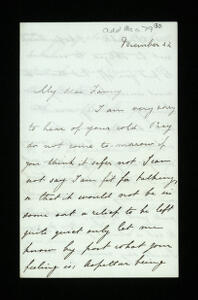 December 22
My dear Fanny
I am very sorry
to hear of your cold. Pray
do not come to-morrow if
you think it safer not I can
not say I am fit for talking,
so that it would not be in
some sort a relief to be left
quite quiet only let me
know by post what your
feeling is,
being